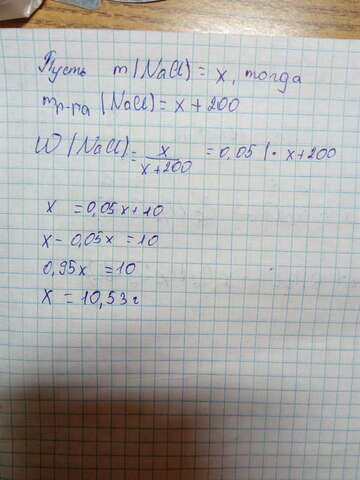 Пусть m(NaCl) = x, тогда
mр-ра (NaCl) = x + 200
W(NaCl) = x/(x+200) = 0,05 | · x+200
x = 0,05x + 10
x - 0,05x = 10
0,95x = 10
x = 10,53 г